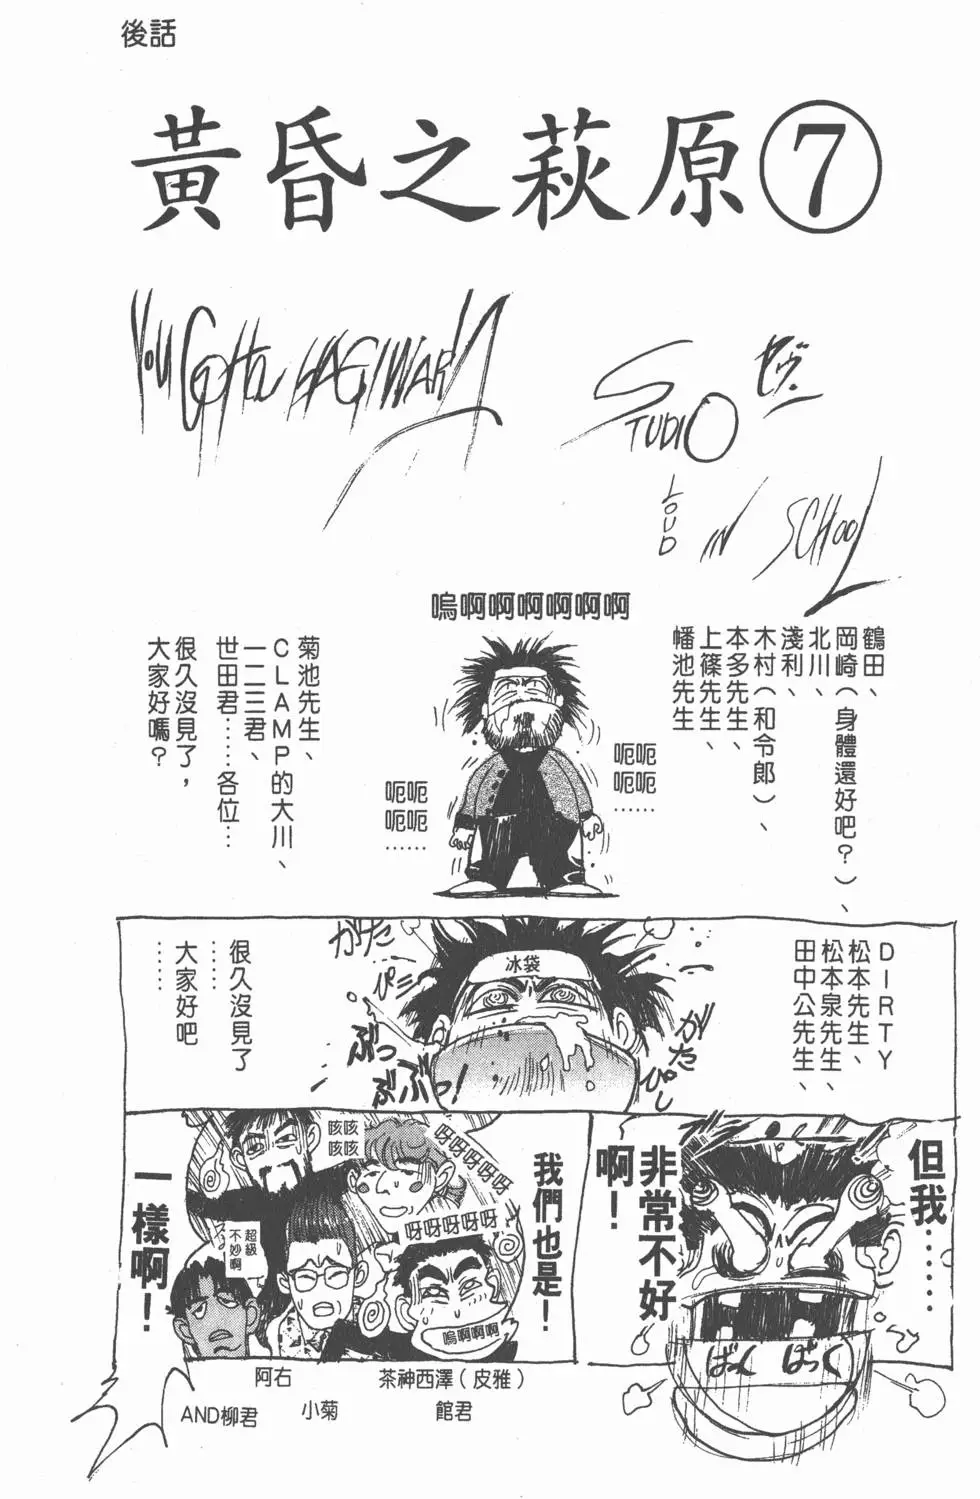 後話
黃昏之萩原⑦
YOU GOHOU HAGIWARA
STUDIO ゼヴ・
LOUD IN SCHOOL
嗚啊啊啊啊啊啊
鶴田、
岡崎(身體還好吧?)、
北川、
淺利、
木村(和令郎)、
本多先生、
上篠先生、
幡池先生
呃呃
呃呃
……
呃呃
呃呃
……
菊池先生、
CLAMP的大川、
一二三君、
世田君……各位…
很久沒見了,
大家好嗎?
DIRTY
松本先生、
松本泉先生、
田中公先生、
冰袋
がたがた
ぴし
がたがた
ぴし
ぶっ
ぶぶっ!
很久沒見了
……
大家好吧
……
但我……
非常不好
啊!
ばんばっく
我們也是!
呀呀呀呀呀
咳咳
咳咳
呀呀呀呀呀
嗚啊啊啊
超級
不妙啊
一樣啊!
茶神西澤(皮雅)
館君
小菊
阿右
AND柳君